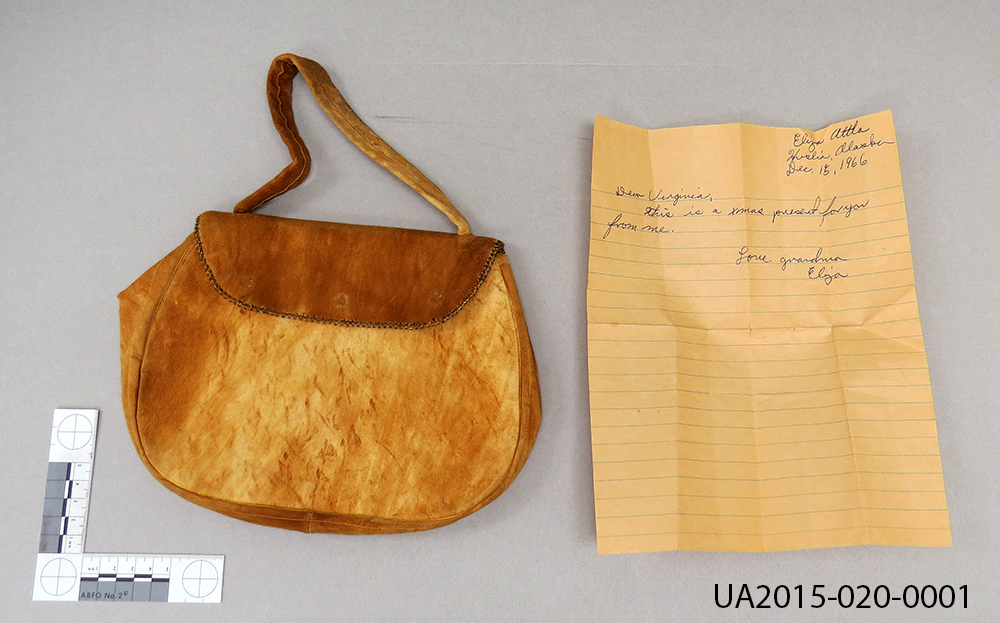 Eliza Attla
Huslia, Alaska
Dec. 15, 1966
Dear Virginia,
this is a xmas present for you
from me.
Love grandma
Eliza
ABFO No. 2
UA2015-020-0001